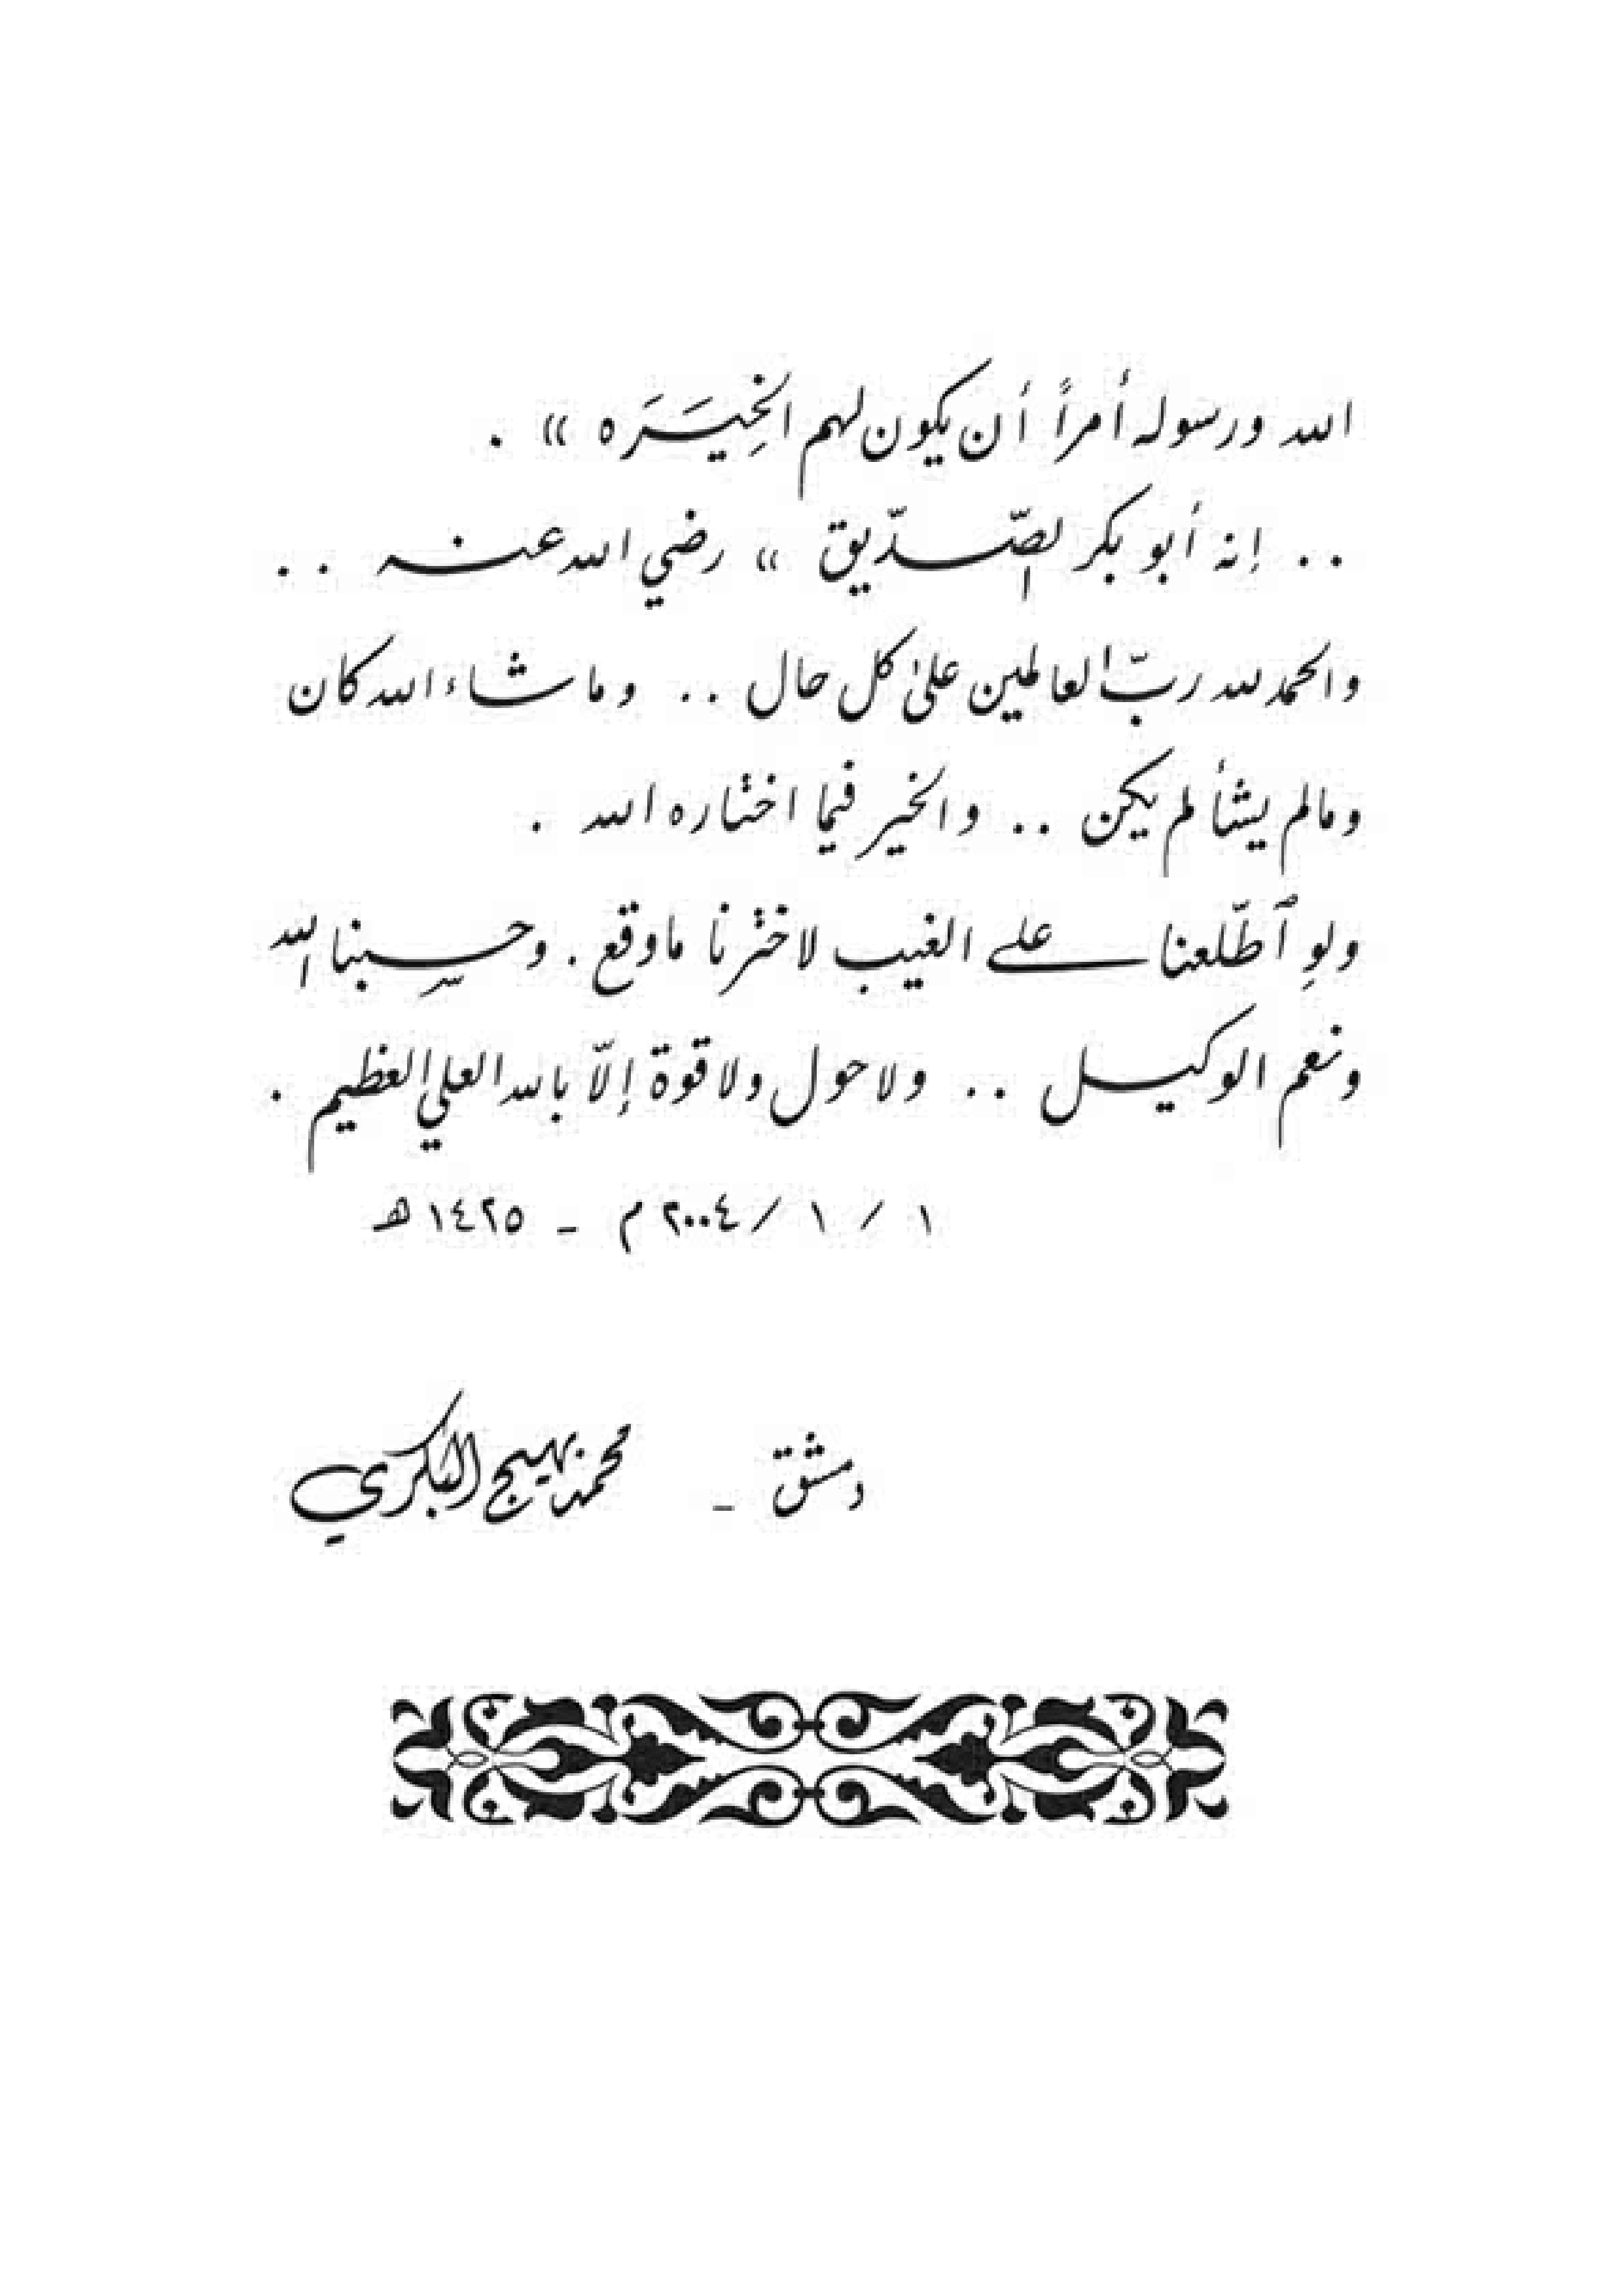 الله ورسوله أمراً أن يكون لهم الخِيَرَه » .
. . إنه أبو بكر الصّدّيق » رضي الله عنه . .
والحمد لله ربّ العالمين علىٰ كل حال . . وما شاء الله كان
ومالم يشأ لم يكن . . والخير فيما اختاره الله .
ولوِ ٱطّلعنا على الغيب لاخترنا ماوقع . وحسبنا الله
ونعم الوكيل . . ولا حول ولا قوة إلاّ بالله العلي العظيم .
١ / ١ / ٢٠٠٤ م - ١٤٢٥ هـ
دمشق - محمد بهيج البكري